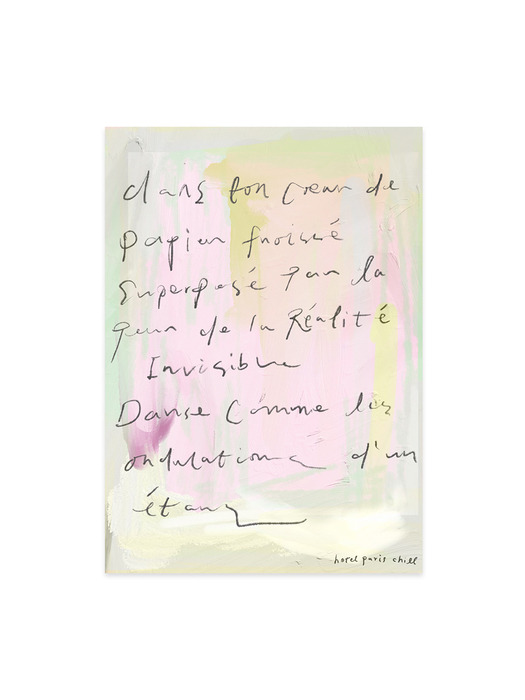 dans ton coeur de
papier froissé
superposé par la
peur de la Réalité
Invisible
Danse Comme les
ondulations d'un
étang
hotel paris chill